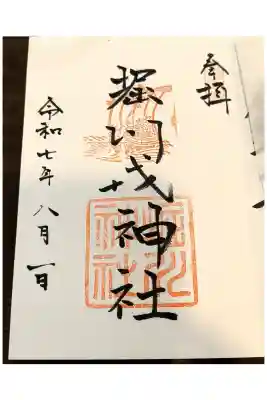 奉拝
堀川戎神社
令和七年八月一日